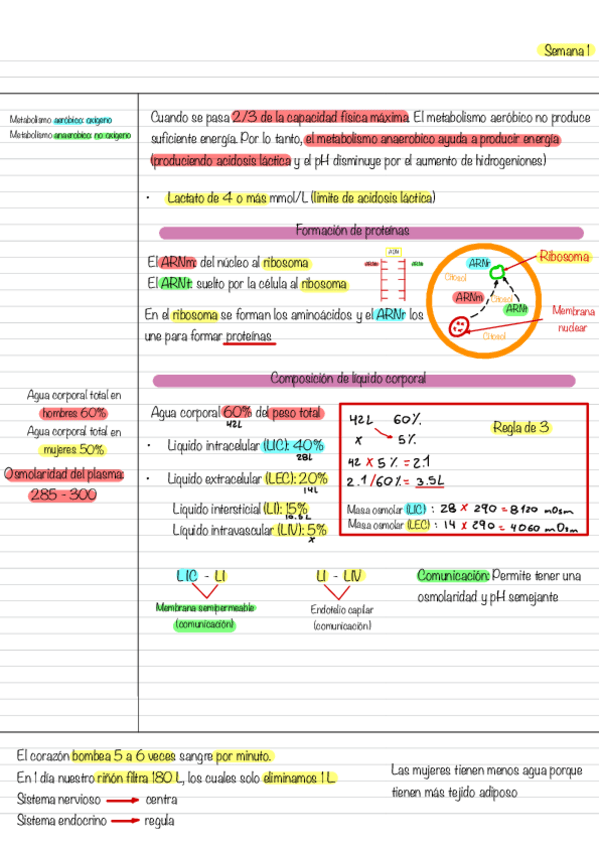 Semana 1
Metabolismo aeróbico: oxigeno
Metabolismo anaerobico: no oxigeno
Cuando se pasa 2/3 de la capacidad física máxima. El metabolismo aeróbico no produce
suficiente energía. Por lo tanto, el metabolismo anaerobico ayuda a producir energía
(produciendo acidosis láctica y el pH disminuye por el aumento de hidrogeniones)
• Lactato de 4 o más mmol/L (límite de acidosis láctica)
Formación de proteínas
El ARNm: del núcleo al ribosoma
El ARNt: suelto por la célula al ribosoma
En el ribosoma se forman los aminoácidos y el ARNr los
une para formar proteínas
ADN
ARNr
Ribosoma
Citosol
ARNm
Citosol
ARNt
Citosol
Membrana
nuclear
Composición de líquido corporal
Agua corporal total en
hombres: 60%
Agua corporal total en
mujeres: 50%
Osmolaridad del plasma:
285 - 300
Agua corporal 60% del peso total
42L
• Líquido intracelular (LIC): 40%
28L
• Líquido extracelular (LEC): 20%
14L
Líquido intersticial (LI): 15%
10.5L
Líquido intravascular (LIV): 5%
x
42L 60%
x 5%
Regla de 3
42 x 5% = 2.1
2.1/60% = 3.5L
Masa osmolar (LIC) : 28 x 290 = 8120 mOsm
Masa osmolar (LEC) : 14 x 290 = 4060 mOsm
LIC - LI
Membrana semipermeable
(comunicación)
LI - LIV
Endotelio capilar
(comunicación)
Comunicación: Permite tener una
osmolaridad y pH semejante
El corazón bombea 5 a 6 veces sangre por minuto.
En 1 día nuestro riñón filtra 180 L, los cuales solo eliminamos 1 L.
Sistema nervioso → centra
Sistema endocrino → regula
Las mujeres tienen menos agua porque
tienen más tejido adiposo